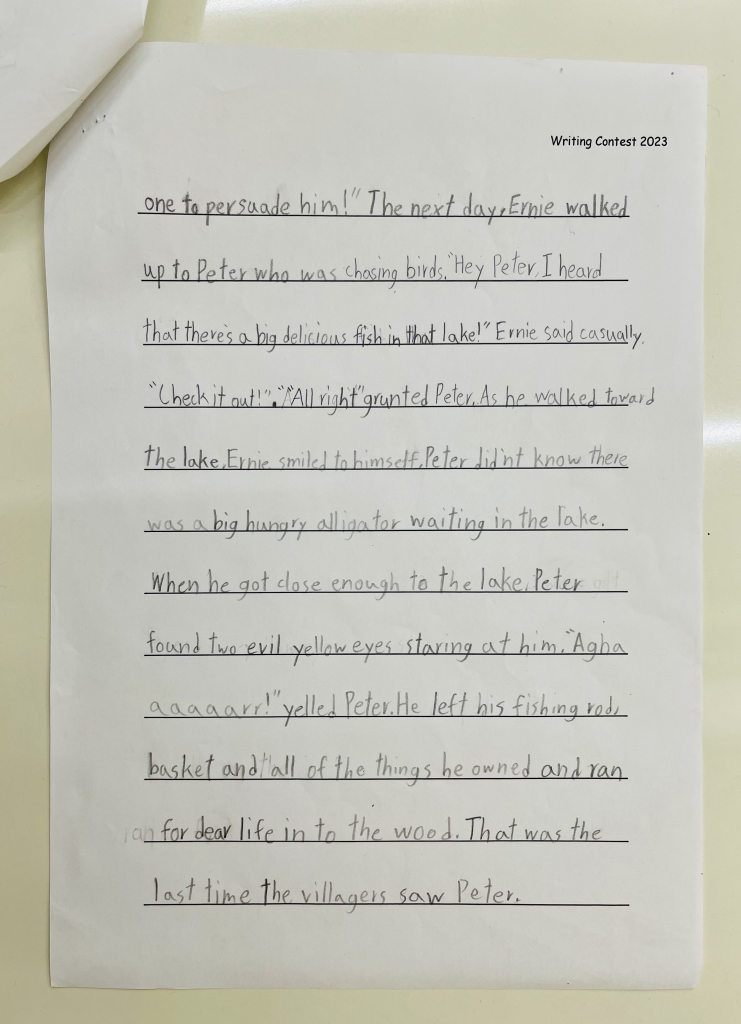 Writing Contest 2023
one to persuade him!" The next day, Ernie walked
up to Peter who was chasing birds. "Hey Peter, I heard
that there's a big delicious fish in that lake!" Ernie said casually.
"Check it out!". "All right" grunted Peter. As he walked toward
the lake, Ernie smiled to himself. Peter did'nt know there
was a big hungry alligator waiting in the lake.
When he got close enough to the lake, Peter
found two evil yellow eyes staring at him. "Agha
aaaaarr!" yelled Peter. He left his fishing rod,
basket and all of the things he owned and ran
for dear life in to the wood. That was the
last time the villagers saw Peter.